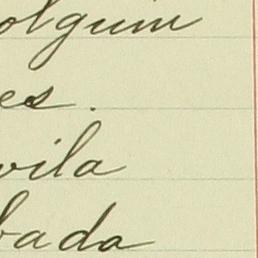 olgum
es.
vila
bada